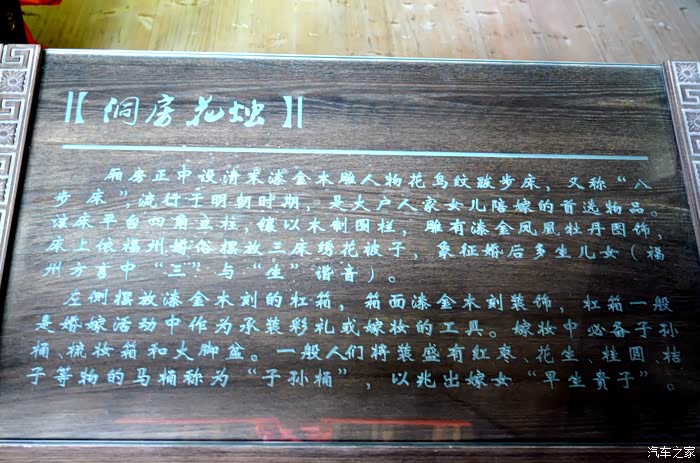 【洞房花烛】
厢房正中设清末漆金木雕人物花鸟纹跋步床，又称“八
步床”，流行于明朝时期，是大户人家女儿陪嫁的首选物品。
该床平台四角立柱，镶以木制围栏，雕有漆金凤凰牡丹图饰，
床上依福州婚俗摆放三床绣花被子，象征婚后多生儿女（福
州方言中“三”与“生”谐音）。
左侧摆放漆金木刻的杠箱，箱面漆金木刻装饰，杠箱一般
是婚嫁活动中作为承装彩礼或嫁妆的工具。嫁妆中必备子孙
桶、梳妆箱和大脚盆。一般人们将装盛有红枣、花生、桂圆、桔
子等物的马桶称为“子孙桶”，以兆出嫁女“早生贵子”。
汽车之家